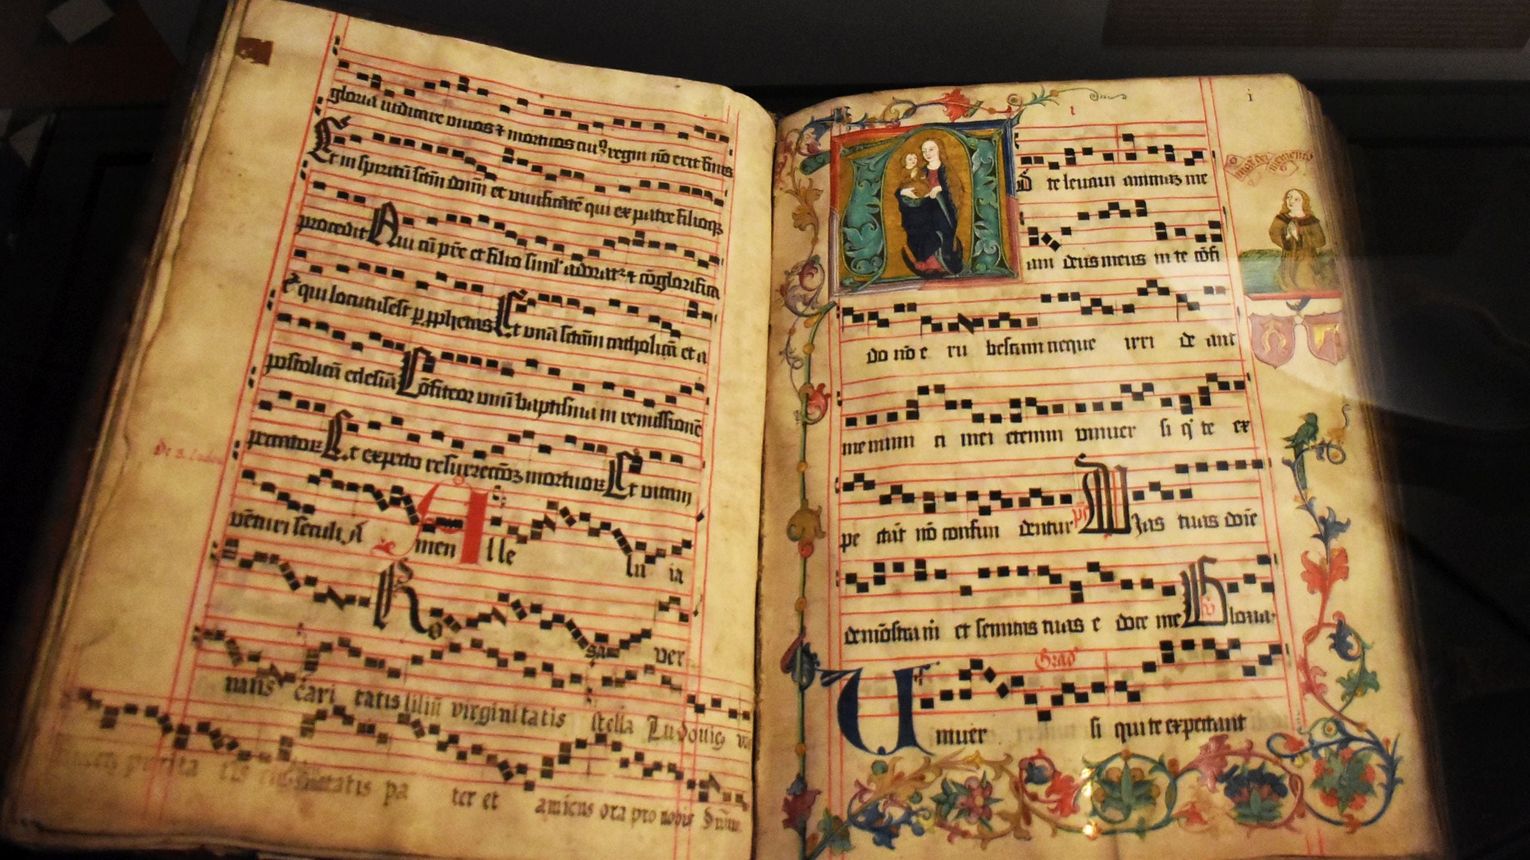 gloria iudicare viuos ⁊ mortuos cuꝰ regni nō erit finis
Et in spiritū sct̄m dominū et viuificātē qui ex patre filioqꝫ
procedit Qui cū p̄re et filio simul adorat᷑ ⁊ cōglorifica
t᷑ qui locutus est ꝑ ꝓphetas Et vnā sctām catholicā et a
postolicā ecclesiā Cōfiteor vnū baptisma in remissionē
peccatoꝝ Et expecto resurrectōꝫ mortuoꝝ Et vitam
de S. Ludou
vēturi seculi A men Alle lu ia
Ro sa ver
nans cari tatis liliū virginitatis stella Ludouice
tis pa ter et amicus ora pro nobis
i
i
Ad te leuaui animaꝫ me
am deus meus in te cōfi
do nō e ru bescam neque irri de ant
me inimi ci mei etenim vniuer si q̇ te ex
pe ctāt nō confun dentur ps Vias tuas dn̄e
demōstra m̄ et semitas tuas e doce me Gloria
Grad᷑
Uniuer si qui te expectant